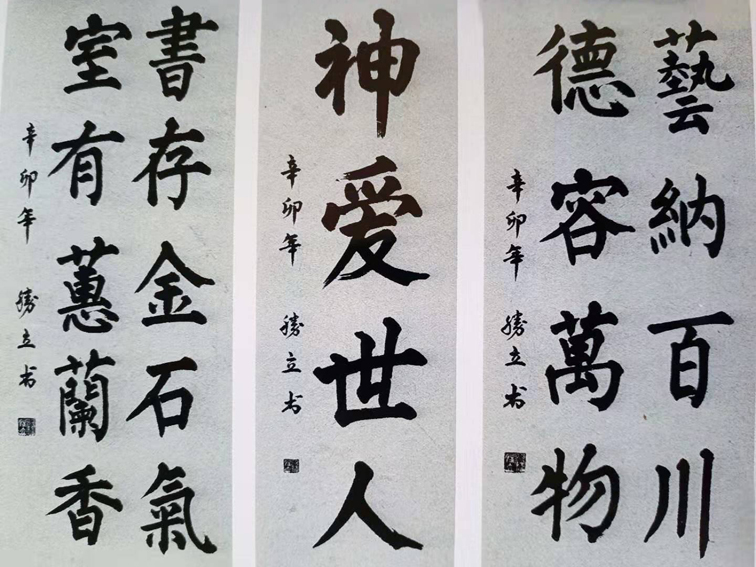 藝納百川
德容萬物
辛卯年 勝立书
神爱世人
辛卯年 勝立书
書存金石氣
室有蕙蘭香
辛卯年 勝立书